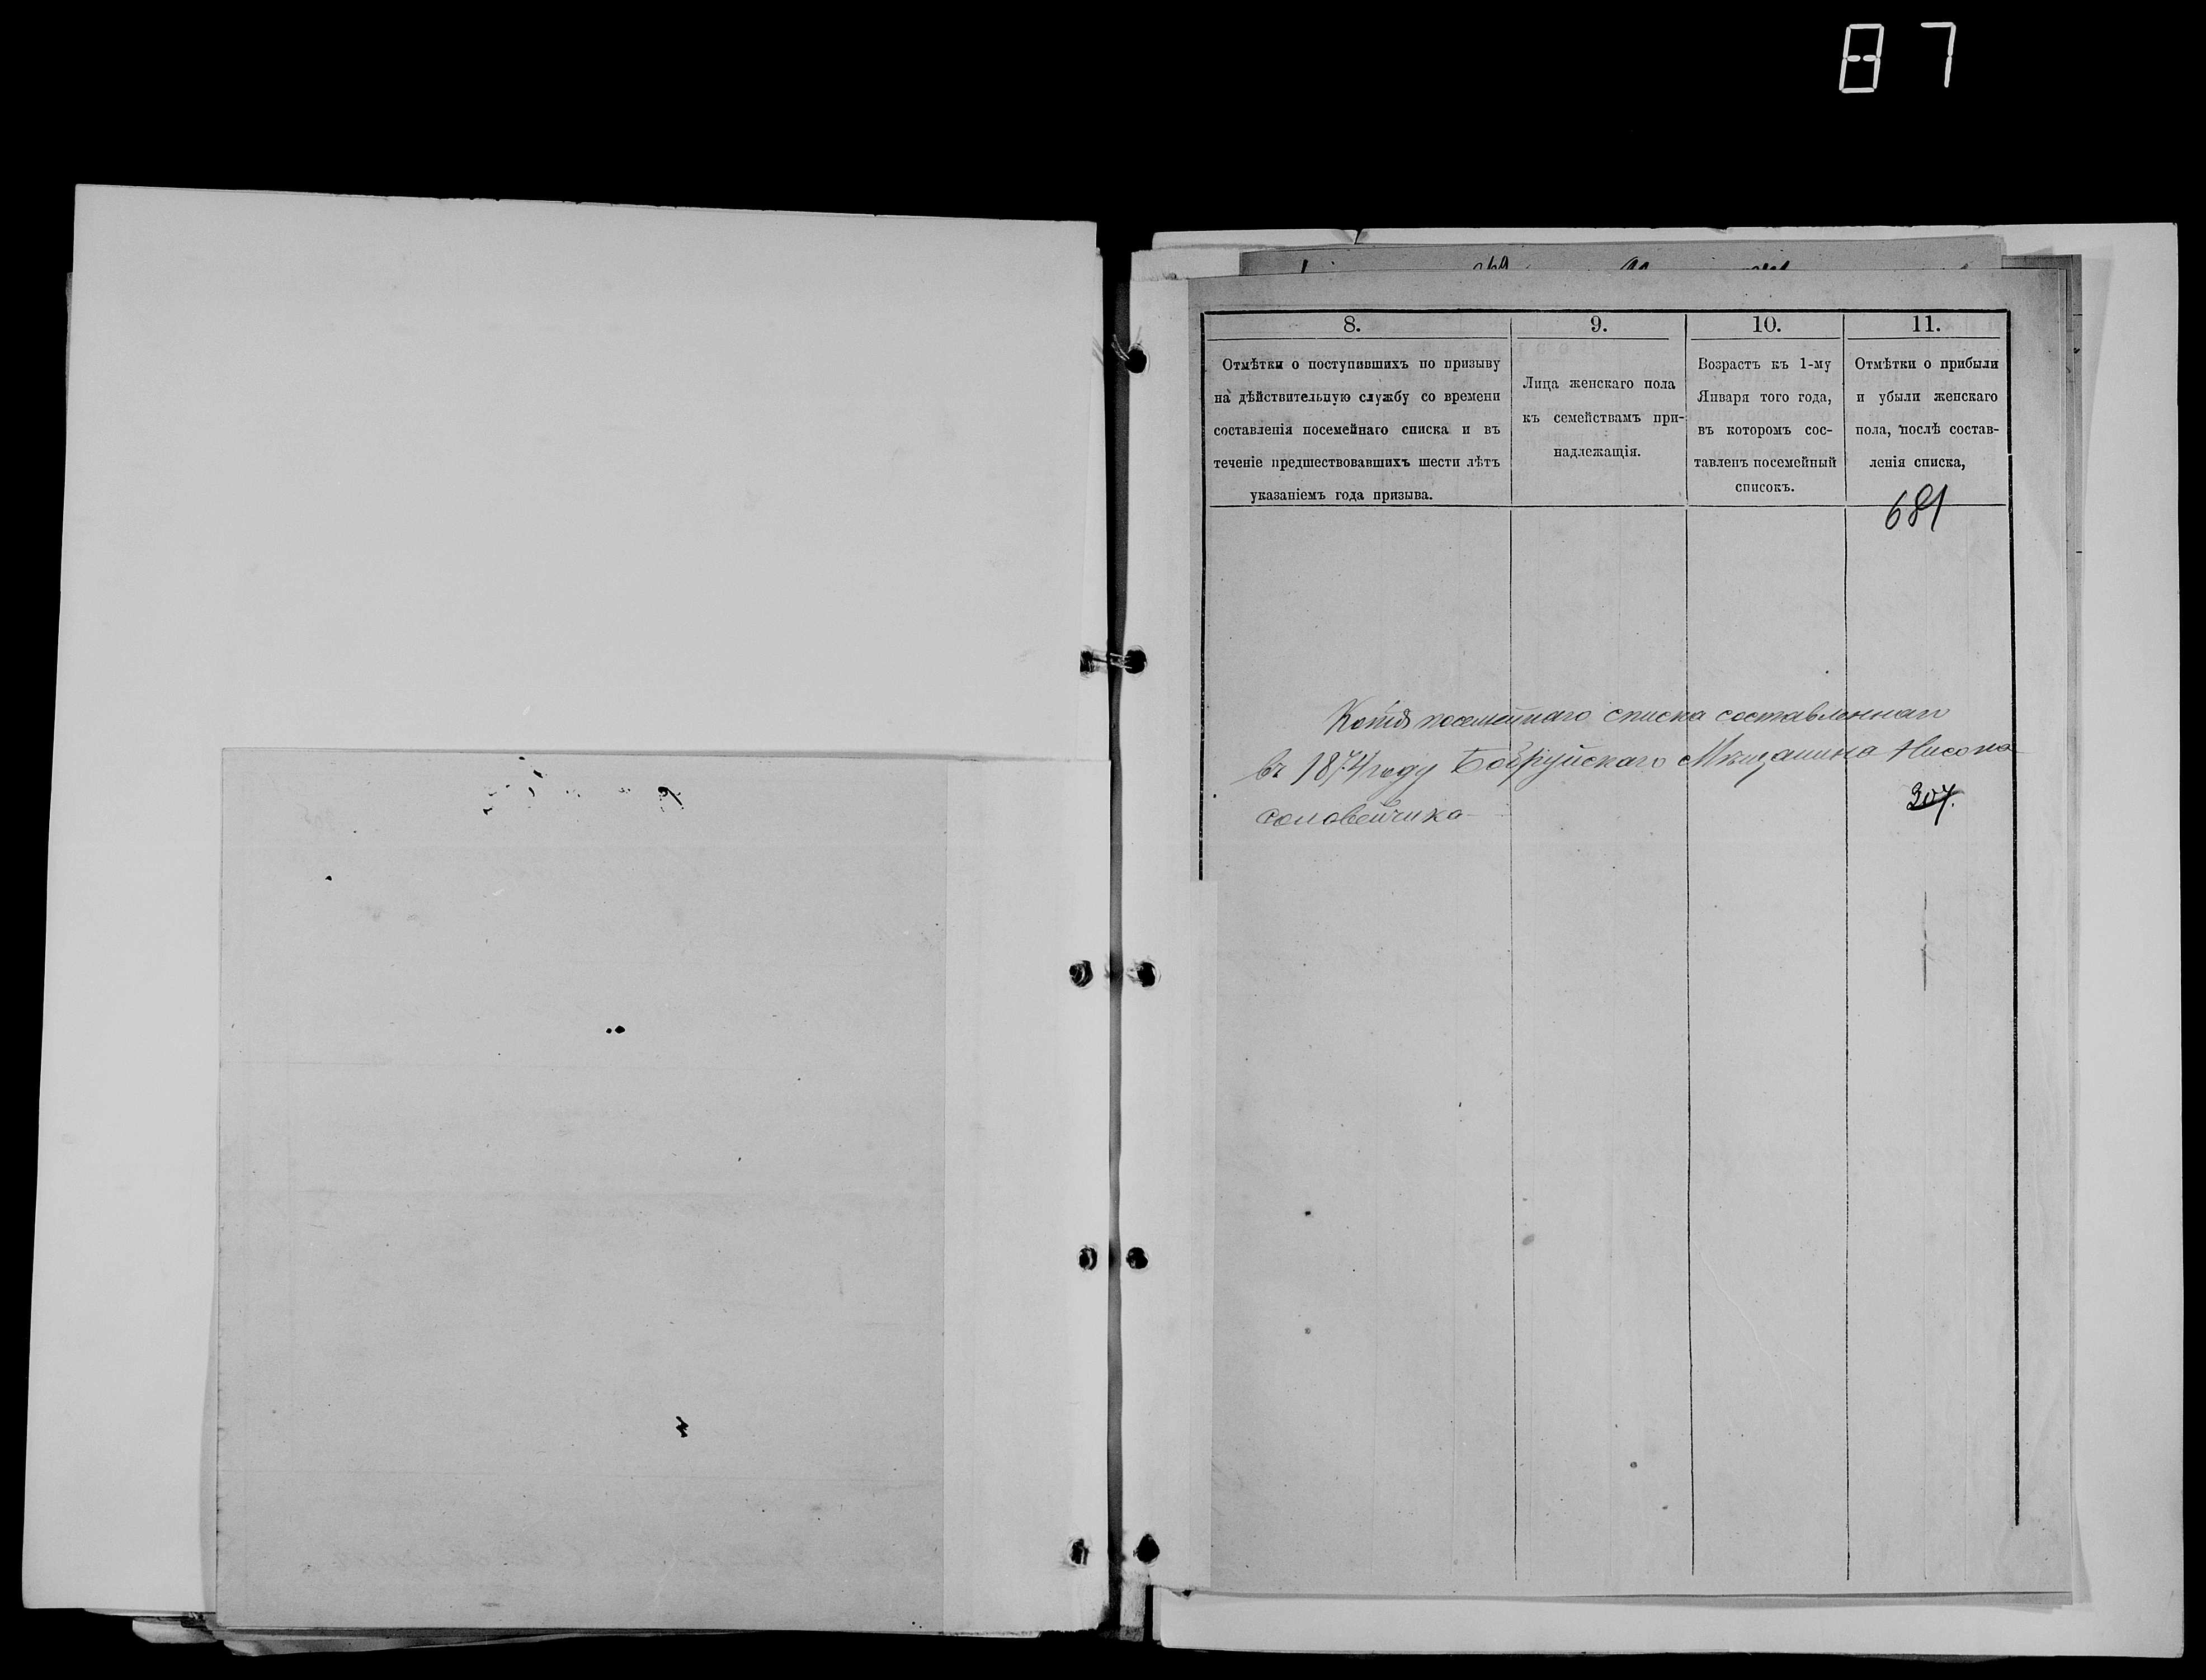 87
8.
9.
10.
11.
Отмѣтки о поступившихъ по призыву
на дѣйствительную службу со времени
составленія посемейнаго списка и въ
теченіе предшествовавшихъ шести лѣтъ
указаніемъ года призыва.
Лица женскаго пола
къ семействамъ при-
надлежащія.
Возрастъ къ 1-му
Января того года,
въ которомъ сос-
тавленъ посемейный
списокъ.
Отмѣтки о прибыли
и убыли женскаго
пола, послѣ состав-
ленія списка,
681
Копія посемейнаго списка составленнаго
въ 1874 году Бобруйскаго Мѣщанина Нисона
Соловейчика
307.